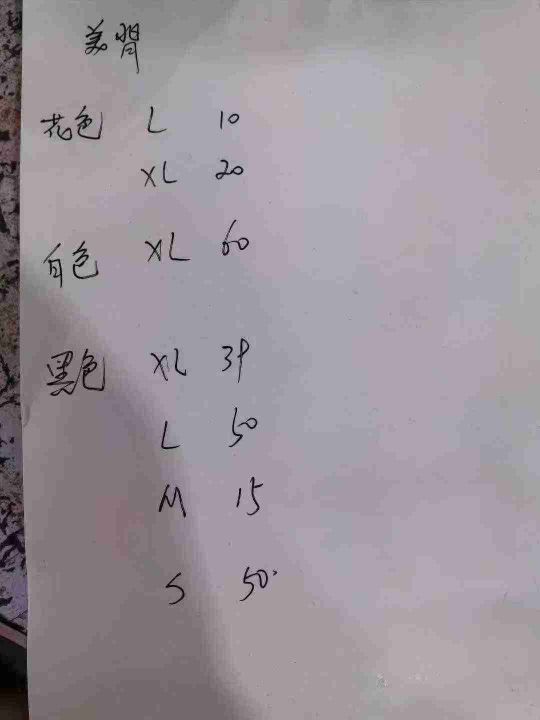 美背
花色 L 10
XL 20
白色 XL 60
黑色 XL 39
L 50
M 15
S 50